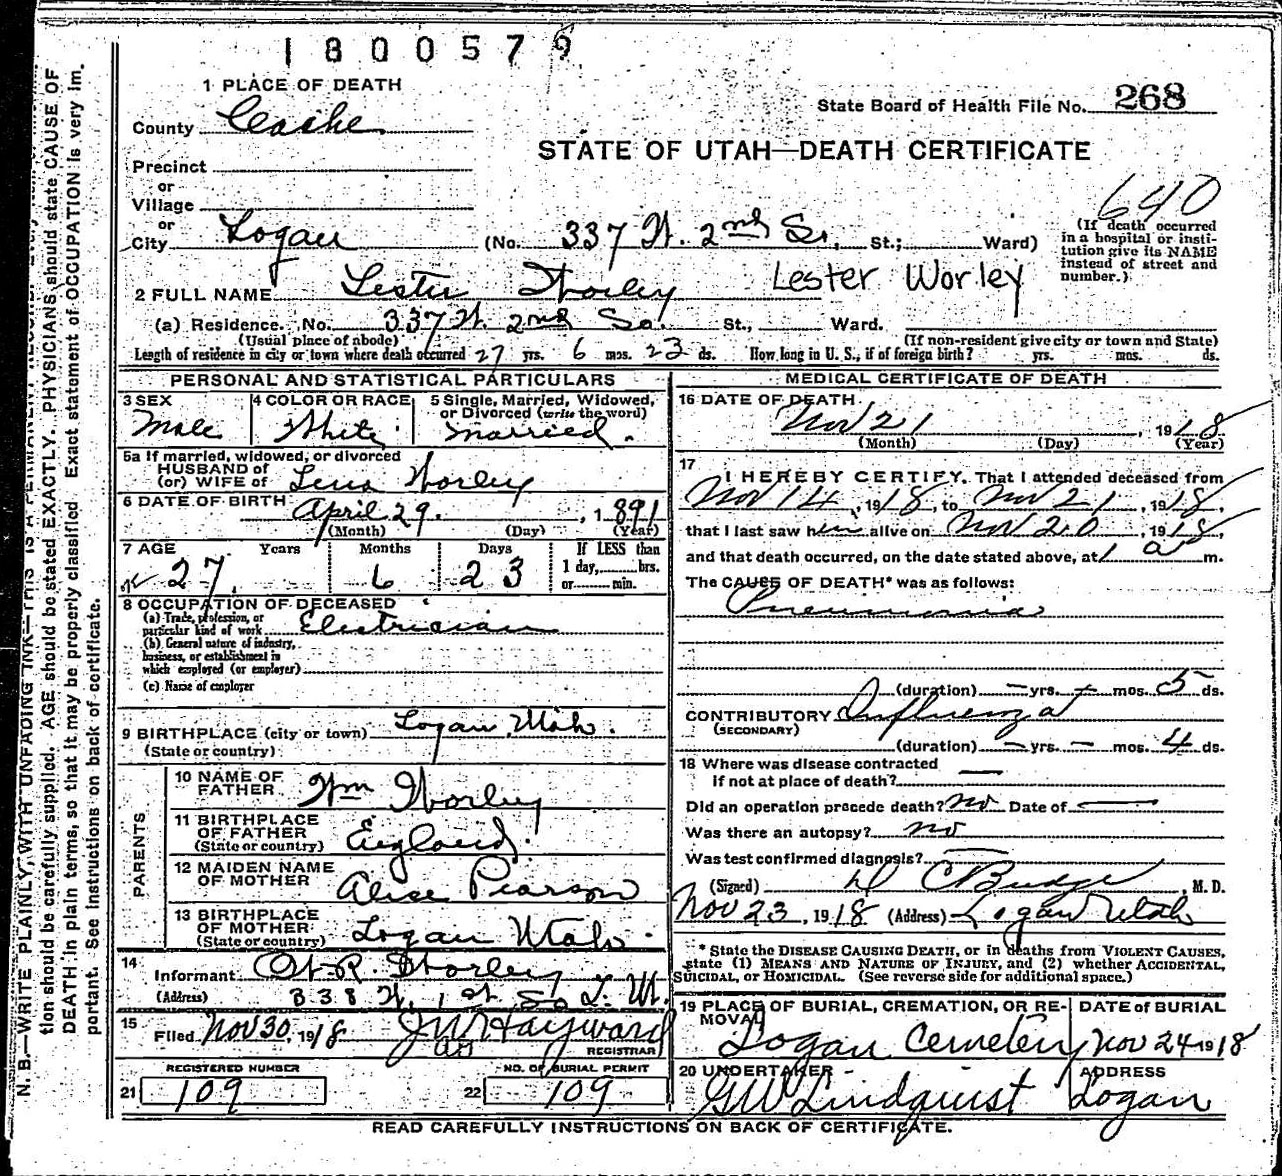 1800579
1 PLACE OF DEATH
State Board of Health File No. 268
County Cache
STATE OF UTAH—DEATH CERTIFICATE
Precinct
or
Village
640
or
City Logan (No. 337 W. 2nd So. St.; Ward)
(If death occurred in a hospital or institution give its NAME instead of street and number.)
2 FULL NAME Lester Worley Lester Worley
(a) Residence. No. 337 W. 2nd So. St., Ward.
(Usual place of abode) (If non-resident give city or town and State)
Length of residence in city or town where death occurred 27 yrs. 6 mos. 23 ds. How long in U. S., if of foreign birth? yrs. mos. ds.
PERSONAL AND STATISTICAL PARTICULARS
3 SEX 4 COLOR OR RACE 5 Single, Married, Widowed,
or Divorced (write the word)
Male White Married.
5a If married, widowed, or divorced
HUSBAND of
(or) WIFE of Lena Worley
6 DATE OF BIRTH April 29. , 1891
(Month) (Day) (Year)
7 AGE Years Months Days If LESS than
1 day, hrs.
or min.
27 6 23
8 OCCUPATION OF DECEASED
(a) Trade, profession, or
particular kind of work Electrician
(b) General nature of industry,
business, or establishment in
which employed (or employer)
(c) Name of employer
9 BIRTHPLACE (city or town) Logan Utah.
(State or country)
PARENTS
10 NAME OF
FATHER Wm Worley
11 BIRTHPLACE
OF FATHER
(State or country) England.
12 MAIDEN NAME
OF MOTHER Alice Pearson
13 BIRTHPLACE
OF MOTHER
(State or country) Logan Utah.
14
Informant W. R. Worley
(Address) 338 W. 1st So L. Ut.
15
Filed Nov 30, 1918 JW Hayward
REGISTRAR
REGISTERED NUMBER NO. OF BURIAL PERMIT
21 109 22 109
MEDICAL CERTIFICATE OF DEATH
16 DATE OF DEATH
Nov 21 , 1918
(Month) (Day) (Year)
17
I HEREBY CERTIFY, That I attended deceased from
Nov 14, 1918, to Nov 21, 1918,
that I last saw him alive on Nov 20, 1918,
and that death occurred, on the date stated above, at 1 a m.
The CAUSE OF DEATH* was as follows:
Pneumonia
(duration) — yrs. — mos. 5 ds.
CONTRIBUTORY Influenza
(SECONDARY)
(duration) — yrs. — mos. 4 ds.
18 Where was disease contracted
if not at place of death? —
Did an operation precede death? no Date of —
Was there an autopsy? no
Was test confirmed diagnosis? —
(Signed) D C Budge, M. D.
Nov 23, 1918 (Address) Logan Utah
* State the DISEASE CAUSING DEATH, or in deaths from VIOLENT CAUSES,
state (1) MEANS AND NATURE OF INJURY, and (2) whether ACCIDENTAL,
SUICIDAL, or HOMICIDAL. (See reverse side for additional space.)
19 PLACE OF BURIAL, CREMATION, OR RE-
MOVAL DATE of BURIAL
Logan Cemetery Nov 24 1918
20 UNDERTAKER ADDRESS
GW Lindquist Logan
READ CAREFULLY INSTRUCTIONS ON BACK OF CERTIFICATE.
N. B.—WRITE PLAINLY, WITH UNFADING INK—THIS IS A PERMANENT
tion should be carefully supplied. AGE should be stated EXACTLY. PHYSICIANS should state CAUSE OF
DEATH in plain terms, so that it may be properly classified Exact statement of OCCUPATION is very im-
portant. See instructions on back of certificate.